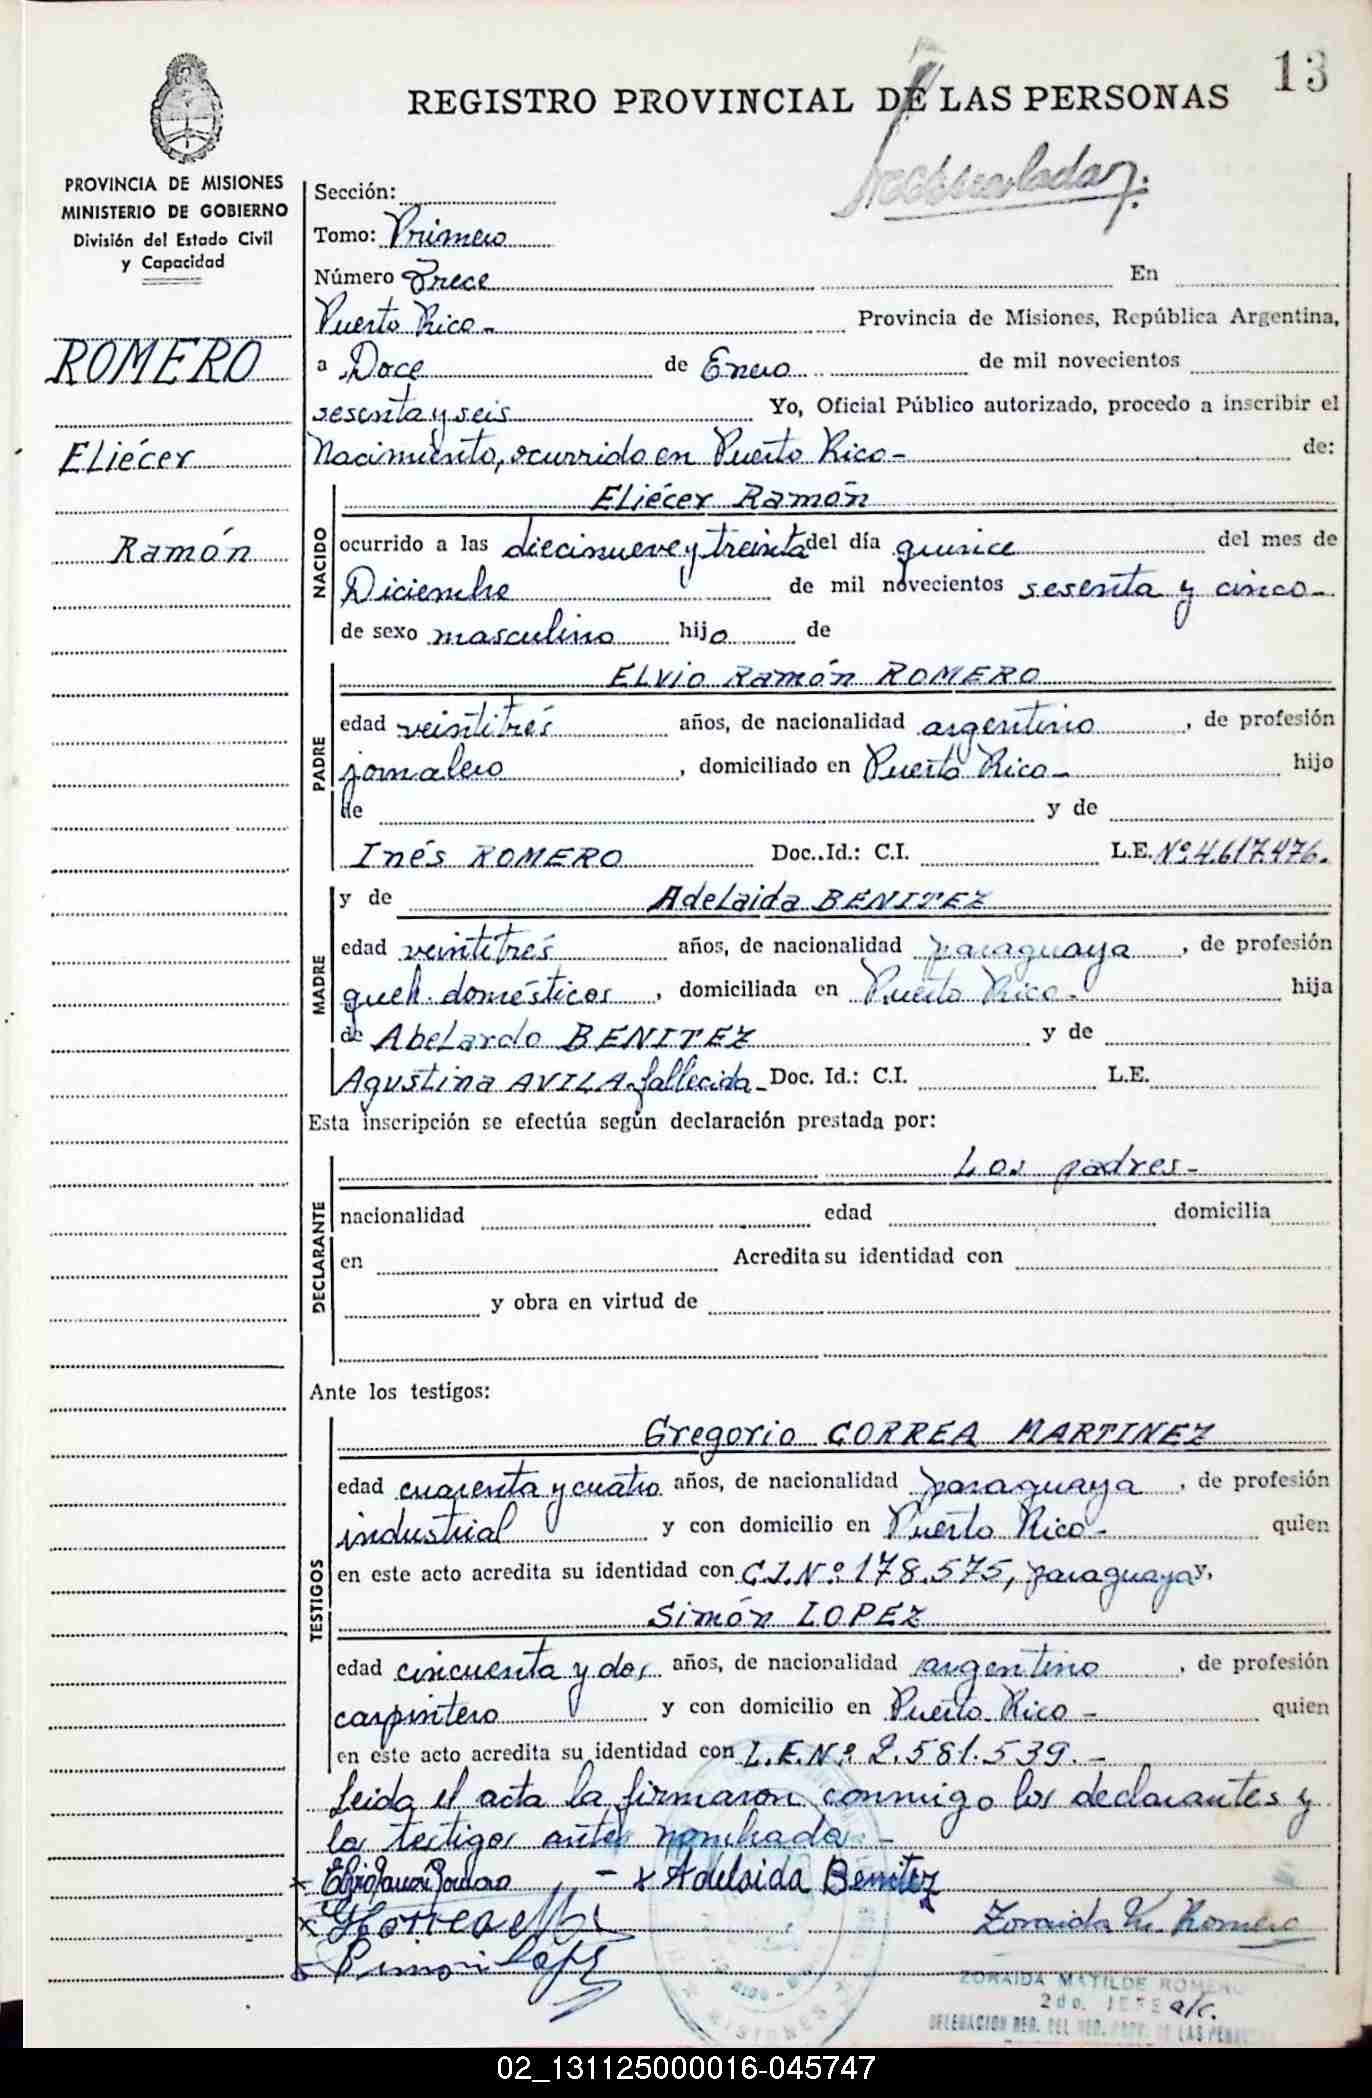 13
REGISTRO PROVINCIAL DE LAS PERSONAS
PROVINCIA DE MISIONES
MINISTERIO DE GOBIERNO
División del Estado Civil
y Capacidad
ROMERO
Eliécer
Ramón
Sección:
Tomo: Primero
Número Trece En
Puerto Rico - Provincia de Misiones, República Argentina,
a Doce de Enero de mil novecientos
sesenta y seis Yo, Oficial Público autorizado, procedo a inscribir el
Nacimiento, ocurrido en Puerto Rico - de:
NACIDO
Eliécer Ramón
ocurrido a las diecinueve y treinta del día quince del mes de
Diciembre de mil novecientos sesenta y cinco -
de sexo masculino hijo de
PADRE
ELvio Ramón ROMERO
edad veintitrés años, de nacionalidad argentino, de profesión
jornalero, domiciliado en Puerto Rico - hijo
de y de
Inés ROMERO Doc. Id.: C.I. L.E. Nº 4.617.476.
MADRE
y de Adelaida BENITEZ
edad veintitrés años, de nacionalidad paraguaya, de profesión
queh. domésticos, domiciliada en Puerto Rico - hija
de Abelardo BENITEZ y de
Agustina AVILA - fallecida - Doc. Id.: C.I. L.E.
Esta inscripción se efectúa según declaración prestada por:
DECLARANTE
Los padres -
nacionalidad edad domicilia
en Acredita su identidad con
y obra en virtud de
Ante los testigos:
TESTIGOS
Gregorio CORREA MARTINEZ
edad cuarenta y cuatro años, de nacionalidad paraguaya, de profesión
industrial y con domicilio en Puerto Rico - quien
en este acto acredita su identidad con C.I. Nº 178.575, paraguaya y,
Simón LOPEZ
edad cincuenta y dos años, de nacionalidad argentino, de profesión
carpintero y con domicilio en Puerto Rico - quien
en este acto acredita su identidad con L.E. Nº 2.581.539. -
Leida el acta la firmaron conmigo los declarantes y
los testigos antes nombrados -
x Elvio Ramon Romero - x Adelaida Benitez
Zoraida M. Romero
Simon Lopez
ZORAIDA MATILDE ROMERO
2do. JEFE a/c.
02_131125000016-045747